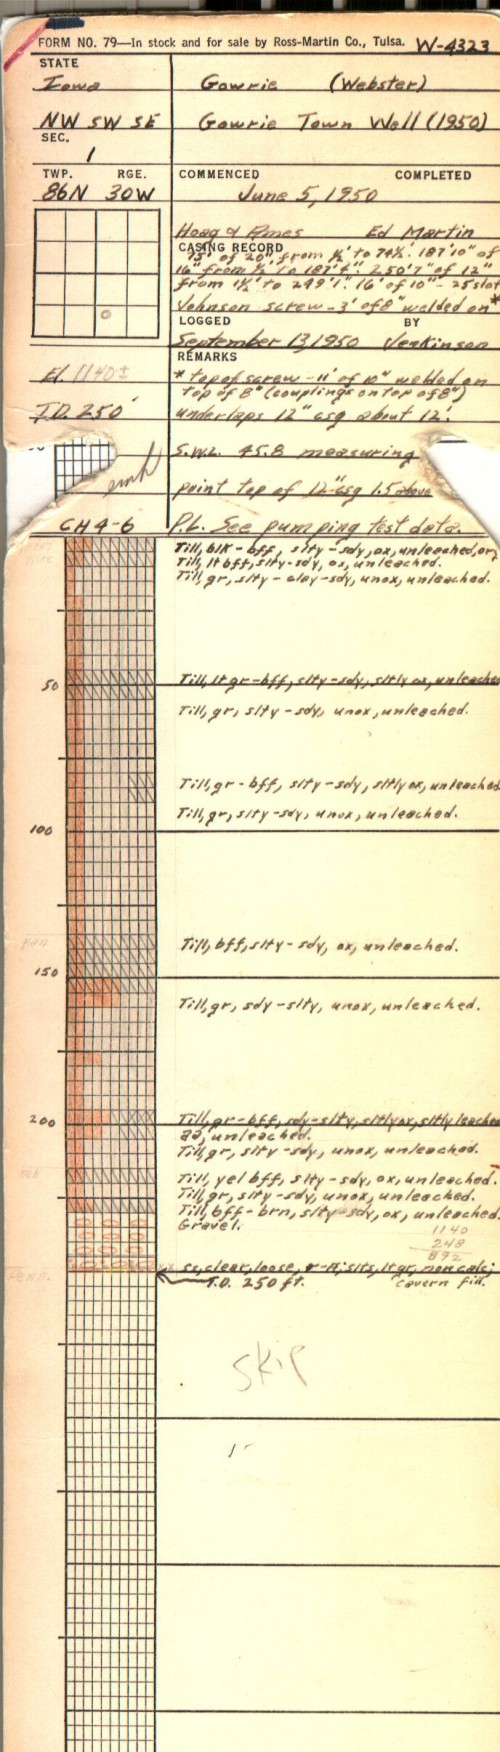 FORM NO. 79—In stock and for sale by Ross-Martin Co., Tulsa. W-4323
STATE
Iowa Gowrie (Webster)
NW SW SE Gowrie Town Well (1950)
SEC.
1
TWP. RGE. COMMENCED COMPLETED
86N 30W June 5, 1950
Hoag & Ames Ed Martin
CASING RECORD
75' of 20" from ½' to 74½'. 187'10" of
16" from ½' to 187'4". 250'7" of 12"
from 1½' to 249'1". 16' of 10" - 25 slot
Johnson screw - 3' of 8" welded on *
LOGGED BY
September 13, 1950 Jenkinson
REMARKS
El. 1140± * top of screw - 11' of 10" welded on
top of 8" (couplings on top of 8")
T.D. 250' underlaps 12" csg about 12'.
S.W.L. 45.8 measuring
emh
point top of 12" csg 1.5 above
CH 4-6 P.L. See pumping test data.
Till, blk-bff, slty-sdy, ox, unleached, or
Till, lt bff, slty-sdy, ox, unleached.
Till, gr, slty-clay-sdy, unox, unleached.
50 Till, lt gr-bff, slty-sdy, sltly ox, unleached
Till, gr, slty-sdy, unox, unleached.
Till, gr-bff, slty-sdy, sltly ox, unleached
Till, gr, slty-sdy, unox, unleached.
100
Kan Till, bff, slty-sdy, ox, unleached.
150
Till, gr, sdy-slty, unox, unleached.
200 Till, gr-bff, sdy-slty, sltly ox, sltly leached
aa, unleached.
Till, gr, slty-sdy, unox, unleached.
Neb Till, yel bff, slty-sdy, ox, unleached.
Till, gr, slty-sdy, unox, unleached.
Till, bff-brn, slty-sdy, ox, unleached.
Gravel.
1140
248
892
Penn. ss, clear, loose, slts, lt gr, noncalc;
T.D. 250 ft. cavern fill.
Skip